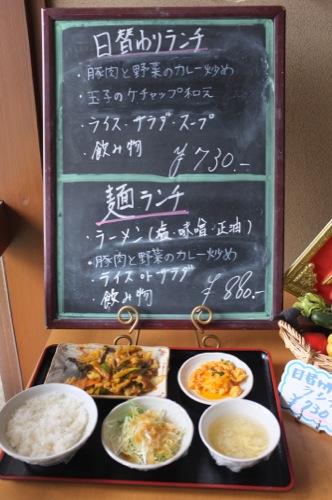 日替わりランチ
・豚肉と野菜のカレー炒め
・玉子のケチャップ和え
・ライス・サラダ・スープ
・飲み物
¥730.-
麺ランチ
・ラーメン(塩・味噌・正油)
・豚肉と野菜のカレー炒め
・ライス or サラダ
・飲み物
¥880.-
日替わりランチ
¥730